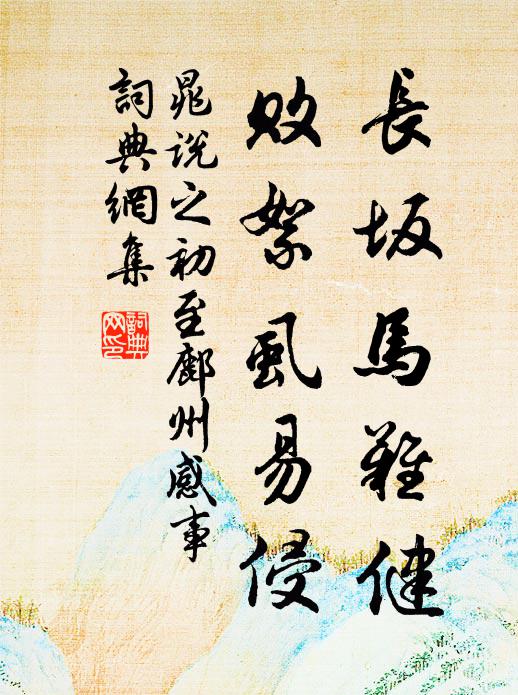 長坂馬難健
敗絮虱易侵
晁説之初至鄜州感事
詞典網集
詞典
网印